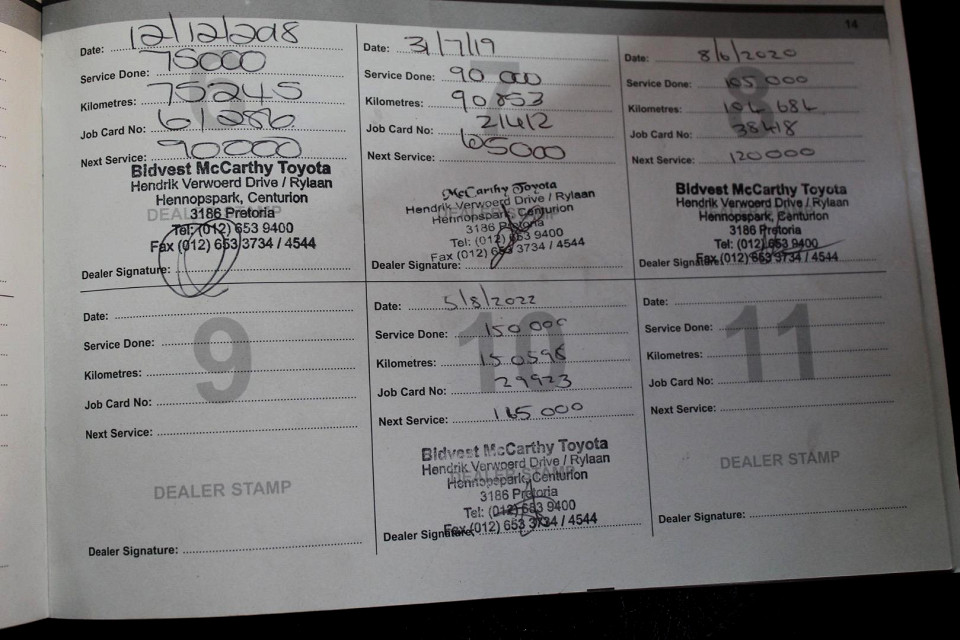 14
Date: 12/12/2018
Service Done: 75000
Kilometres: 75245
Job Card No: 61286
Next Service: 90000
Bidvest McCarthy Toyota
Hendrik Verwoerd Drive / Rylaan
Hennopspark, Centurion
DEALER STAMP
3186 Pretoria
Tel: (012) 653 9400
Fax (012) 653 3734 / 4544
Dealer Signature:
7
Date: 31/7/19
Service Done: 90 000
Kilometres: 90853
Job Card No: 21412
Next Service: 65000
McCarthy Toyota
Hendrik Verwoerd Drive / Rylaan
Hennopspark, Centurion
3186 Pretoria
Tel: (012) 653 9400
Fax (012) 653 3734 / 4544
Dealer Signature:
8
Date: 8/6/2020
Service Done: 105 000
Kilometres:
Job Card No: 38418
Next Service: 120000
Bidvest McCarthy Toyota
Hendrik Verwoerd Drive / Rylaan
Hennopspark, Centurion
3186 Pretoria
Tel: (012) 653 9400
Fax (012) 653 3734 / 4544
Dealer Signature:
9
Date:
Service Done:
Kilometres:
Job Card No:
Next Service:
DEALER STAMP
Dealer Signature:
10
Date: 5/8/2022
Service Done: 150 000
Kilometres: 150598
Job Card No: 29923
Next Service: 165 000
Bidvest McCarthy Toyota
Hendrik Verwoerd Drive / Rylaan
DEALER STAMP
Hennopspark, Centurion
3186 Pretoria
Tel: (012) 653 9400
Fax (012) 653 3734 / 4544
Dealer Signature:
11
Date:
Service Done:
Kilometres:
Job Card No:
Next Service:
DEALER STAMP
Dealer Signature: